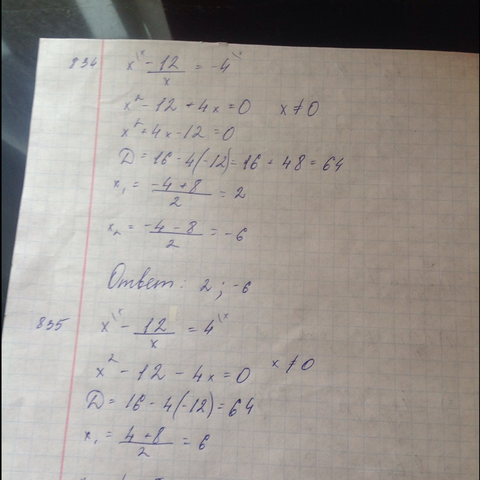 834 x\x - 12/x = -4\x
x² - 12 + 4x = 0 x ≠ 0
x² + 4x - 12 = 0
D = 16 - 4(-12) = 16 + 48 = 64
x₁ = (-4 + 8)/2 = 2
x₂ = (-4 - 8)/2 = -6
Ответ: 2; -6
835 x\x - 12/x = 4\x
x² - 12 - 4x = 0 x ≠ 0
D = 16 - 4(-12) = 64
x₁ = (4 + 8)/2 = 6